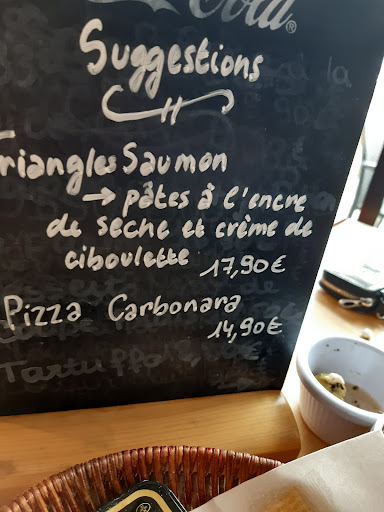 Cola®
Suggestions
Triangles Saumon
→ pâtes à l'encre
de seche et crème de
ciboulette 17,90€
Pizza Carbonara
14,90€